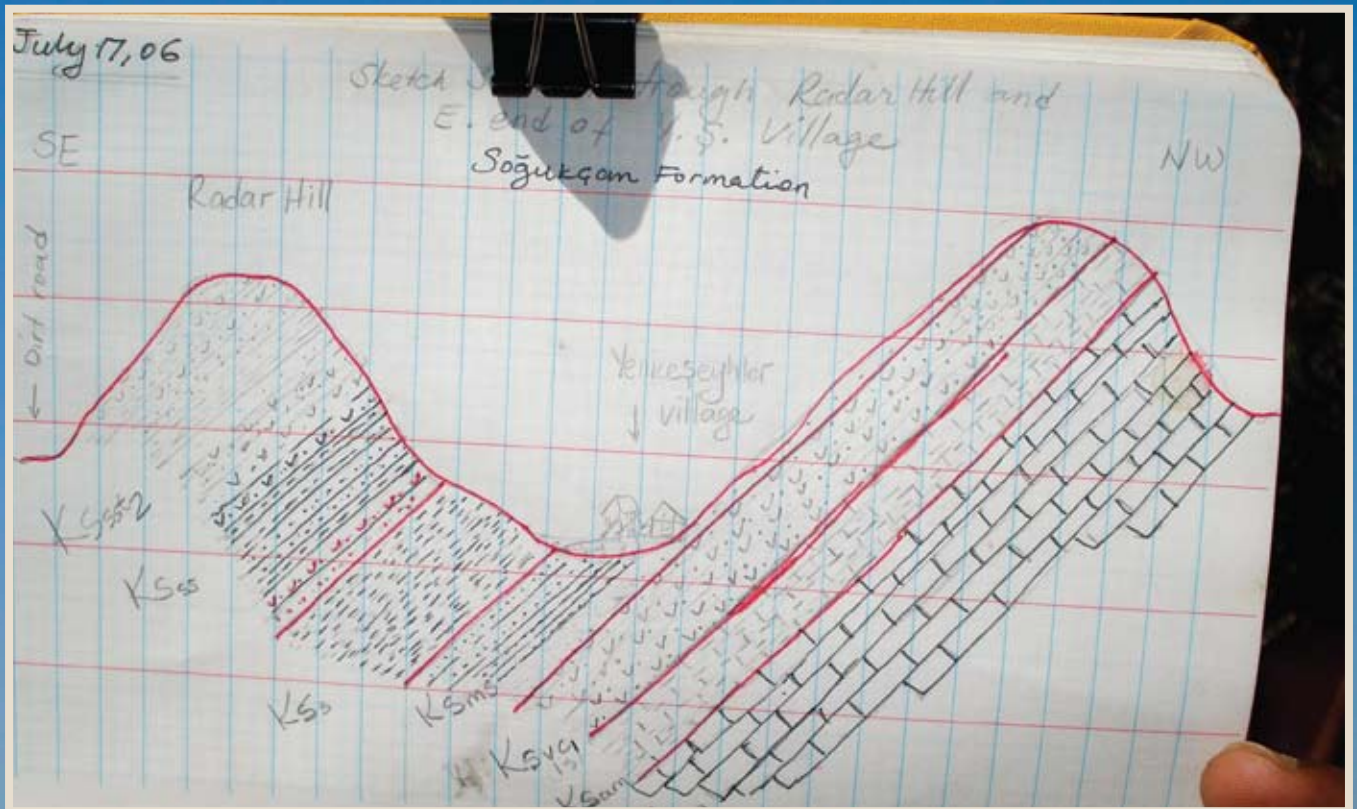 July 17, 06
Sketch through Radar Hill and
E. end of Y.Ş. Village
Soğukçam Formation
SE
NW
Radar Hill
← Dirt road
Yenikeşeyhler
↓ village
KSss2
KSss
KSs
KSms
KSvg
KSam